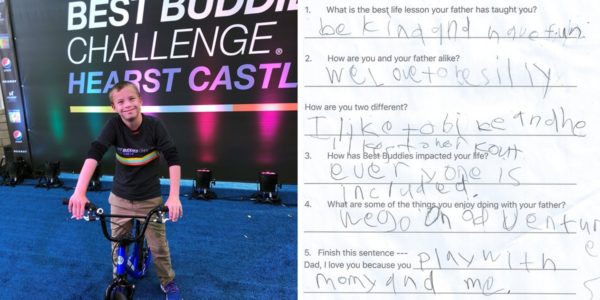 BEST BUDDIES
CHALLENGE®
HEARST CASTL
BUDDIES
1. What is the best life lesson your father has taught you?
be kind and have fun.
2. How are you and your father alike?
we Love to be silly.
How are you two different?
I like to bike and he
likes to work out
3. How has Best Buddies impacted your life?
every one is
included.
4. What are some of the things you enjoy doing with your father?
we go on adventure
5. Finish this sentence ---
Dad, I love you because you play with
momy and me.